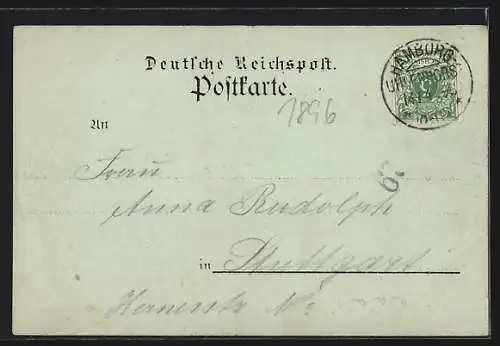 Deutsche Reichspost.
Postkarte.
HAMBURG
1896
An
6.
Frau
Anna Rudolph
in Stuttgart
Hernerstr No